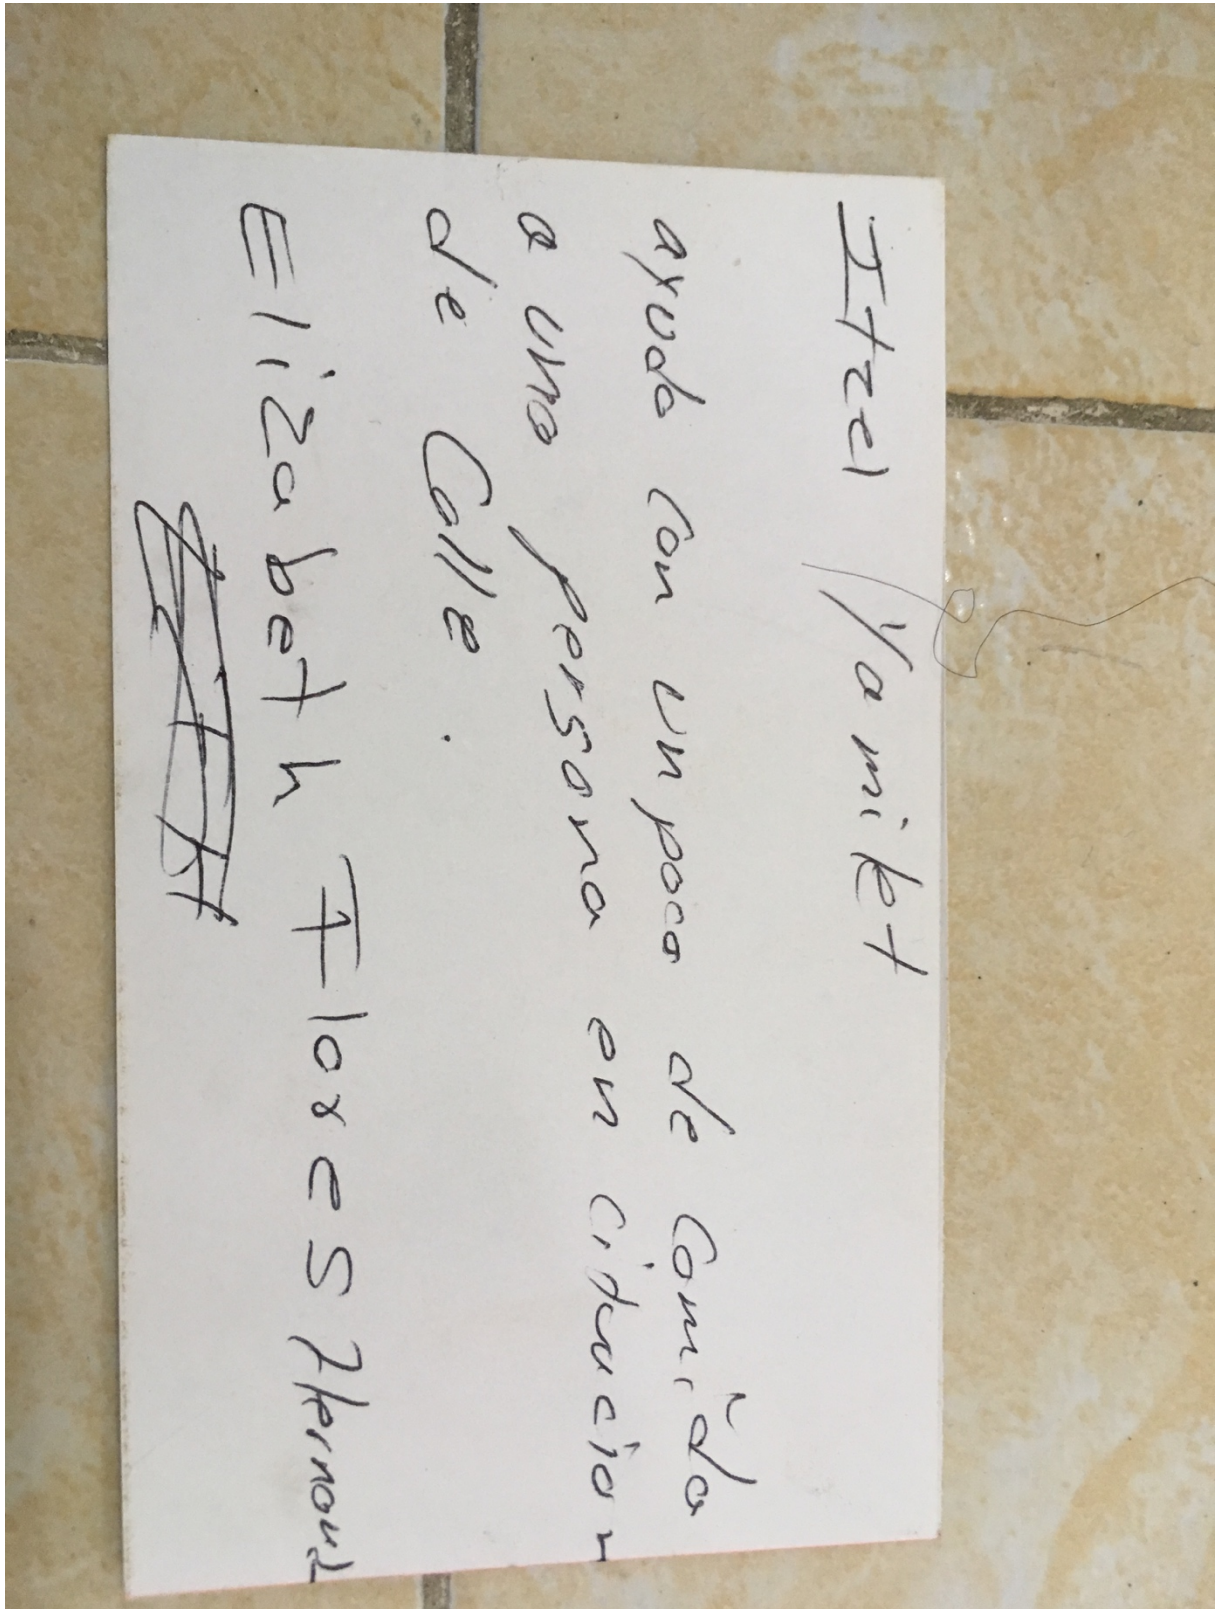 Itzel Yamilet
ayudo con un poco de comida
a una persona en cituacion
de Calle.
Elizabeth Flores